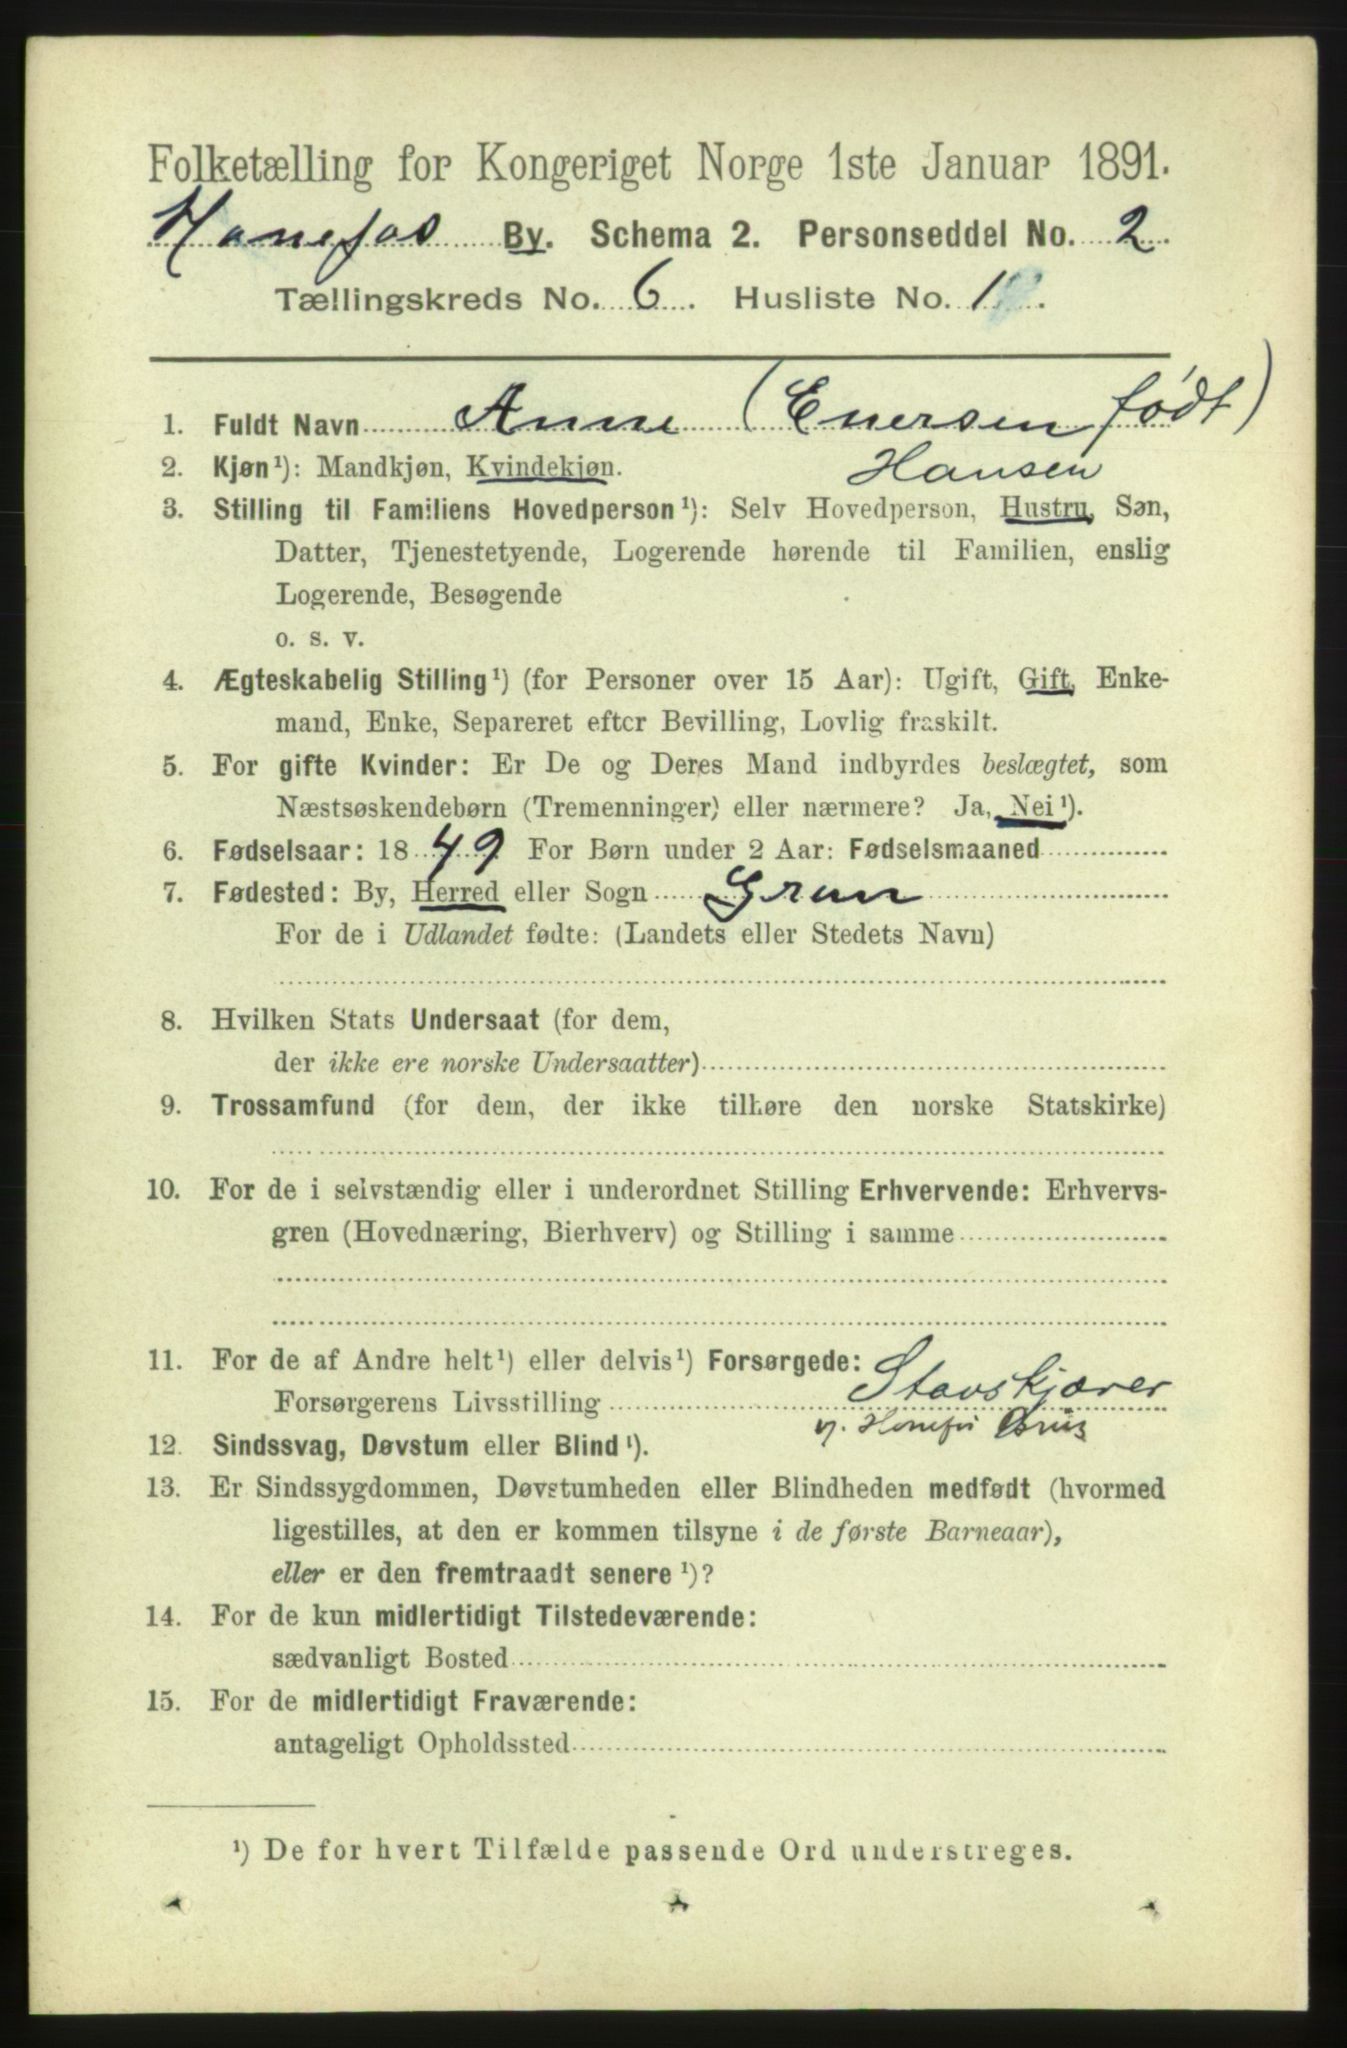 Folketælling for Kongeriget Norge 1ste Januar 1891.
Hønefos By. Schema 2. Personseddel No. 2.
Tællingskreds No. 6. Husliste No. 1.
1. Fuldt Navn Anne (Enersen født)
2. Kjøn¹): Mandkjøn, Kvindekjøn. Hansen
3. Stilling til Familiens Hovedperson¹): Selv Hovedperson, Hustru, Søn,
Datter, Tjenestetyende, Logerende hørende til Familien, enslig
Logerende, Besøgende
o. s. v.
4. Ægteskabelig Stilling¹) (for Personer over 15 Aar): Ugift, Gift, Enke-
mand, Enke, Separeret efter Bevilling, Lovlig fraskilt.
5. For gifte Kvinder: Er De og Deres Mand indbyrdes beslægtet, som
Næstsøskendebørn (Tremenninger) eller nærmere? Ja, Nei¹).
6. Fødselsaar: 1849 For Børn under 2 Aar: Fødselsmaaned
7. Fødested: By, Herred eller Sogn Gran
For de i Udlandet fødte: (Landets eller Stedets Navn)
8. Hvilken Stats Undersaat (for dem,
der ikke ere norske Undersaatter)
9. Trossamfund (for dem, der ikke tilhøre den norske Statskirke)
10. For de i selvstændig eller i underordnet Stilling Erhvervende: Erhvervs-
gren (Hovednæring, Bierhverv) og Stilling i samme
11. For de af Andre helt¹) eller delvis¹) Forsørgede:
Forsørgerens Livsstilling Stavskjærer
v. Hønefos Brug
12. Sindssvag, Døvstum eller Blind¹).
13. Er Sindssygdommen, Døvstumheden eller Blindheden medfødt (hvormed
ligestilles, at den er kommen tilsyne i de første Barneaar),
eller er den fremtraadt senere¹)?
14. For de kun midlertidigt Tilstedeværende:
sædvanligt Bosted
15. For de midlertidigt Fraværende:
antageligt Opholdssted
¹) De for hvert Tilfælde passende Ord understreges.